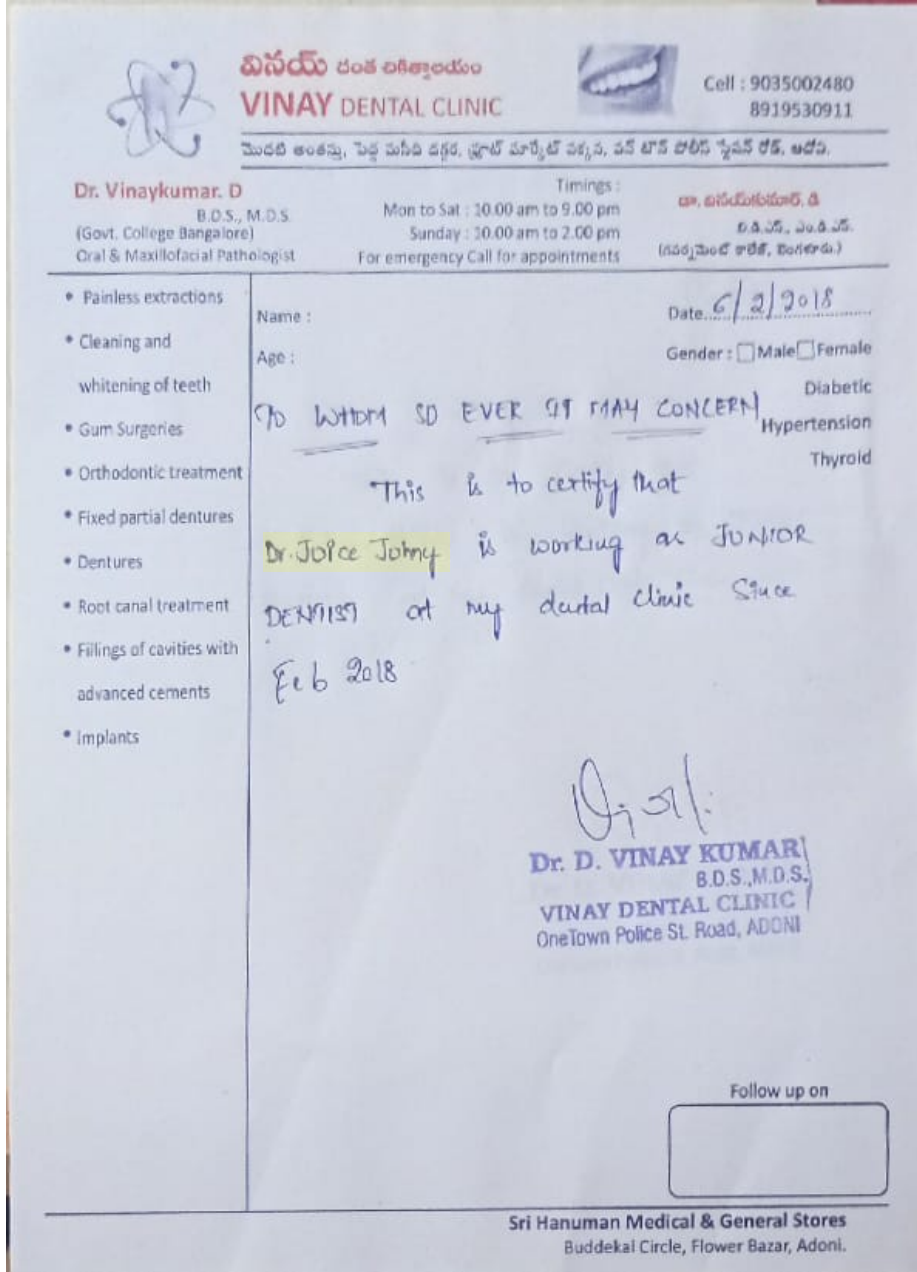 వినయ్ దంత చికిత్సాలయం
VINAY DENTAL CLINIC
Cell : 9035002480
8919530911
మొదటి అంతస్తు, పెద్ద మసీది దగ్గర, ఫ్రూట్ మార్కెట్ పక్కన, వన్ టౌన్ పోలీస్ స్టేషన్ రోడ్, ఆదోని.
Dr. Vinaykumar. D
B.D.S., M.D.S.
(Govt. College Bangalore)
Oral & Maxillofacial Pathologist
Timings :
Mon to Sat : 10.00 am to 9.00 pm
Sunday : 10.00 am to 2.00 pm
For emergency Call for appointments
డా. వినయ్‌కుమార్. డి
బి.డి.ఎస్., ఎం.డి.ఎస్.
(గవర్నమెంట్ కాలేజ్, బెంగళూరు.)
• Painless extractions
• Cleaning and
whitening of teeth
• Gum Surgeries
• Orthodontic treatment
• Fixed partial dentures
• Dentures
• Root canal treatment
• Fillings of cavities with
advanced cements
• Implants
Name :
Date 6/2/2018
Age :
Gender : Male Female
Diabetic
Hypertension
Thyroid
TO WHOM SO EVER IT MAY CONCERN
This is to certify that
Dr. JOICE Johny is working as JUNIOR
DENTIST at my dental clinic Since
Feb 2018
Dr. D. VINAY KUMAR
B.D.S.,M.D.S.
VINAY DENTAL CLINIC
OneTown Police St. Road, ADONI
Follow up on
Sri Hanuman Medical & General Stores
Buddekal Circle, Flower Bazar, Adoni.